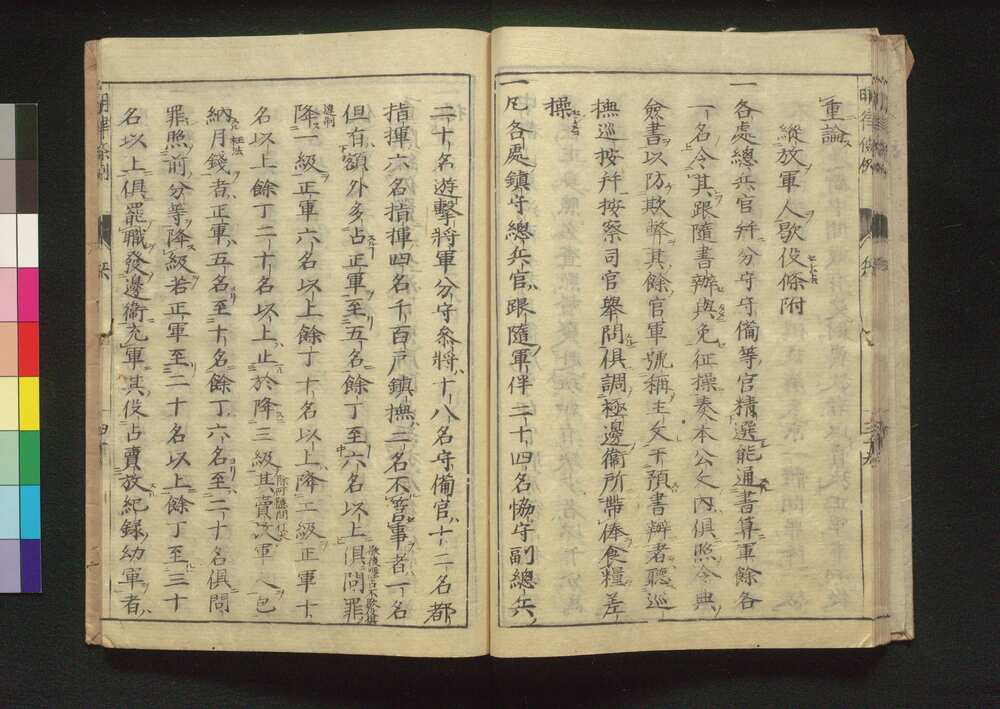 重論
縱放軍人歇役條附
一各處總兵官幷分守守備等官精選能通書算軍餘各
一名令其跟隨書辦與免征操奏本公文內俱照令典
僉書以防欺弊其餘官軍號稱主文干預書辦者聽巡
撫巡按幷按察司官舉問俱調極邊衞所帶俸食糧差
操
一凡各處鎮守總兵官跟隨軍伴二十四名協守副總兵
二十名遊擊將軍分守參將十八名守備官十二名都
指揮六名指揮四名千百戶鎮撫二名不管事者一名
但有額外多占正軍至五名餘丁至六名以上俱問罪
降一級正軍六名以上餘丁十名以上降二級正軍十
名以上餘丁二十名以上止於降三級其賣放軍人包
納月錢者正軍五名至十名餘丁六名至二十名俱問
罪照前分等降級若正軍至二十名以上餘丁至三十
名以上俱罷職發邊衞充軍其役占賣放紀錄幼軍者
明律條例